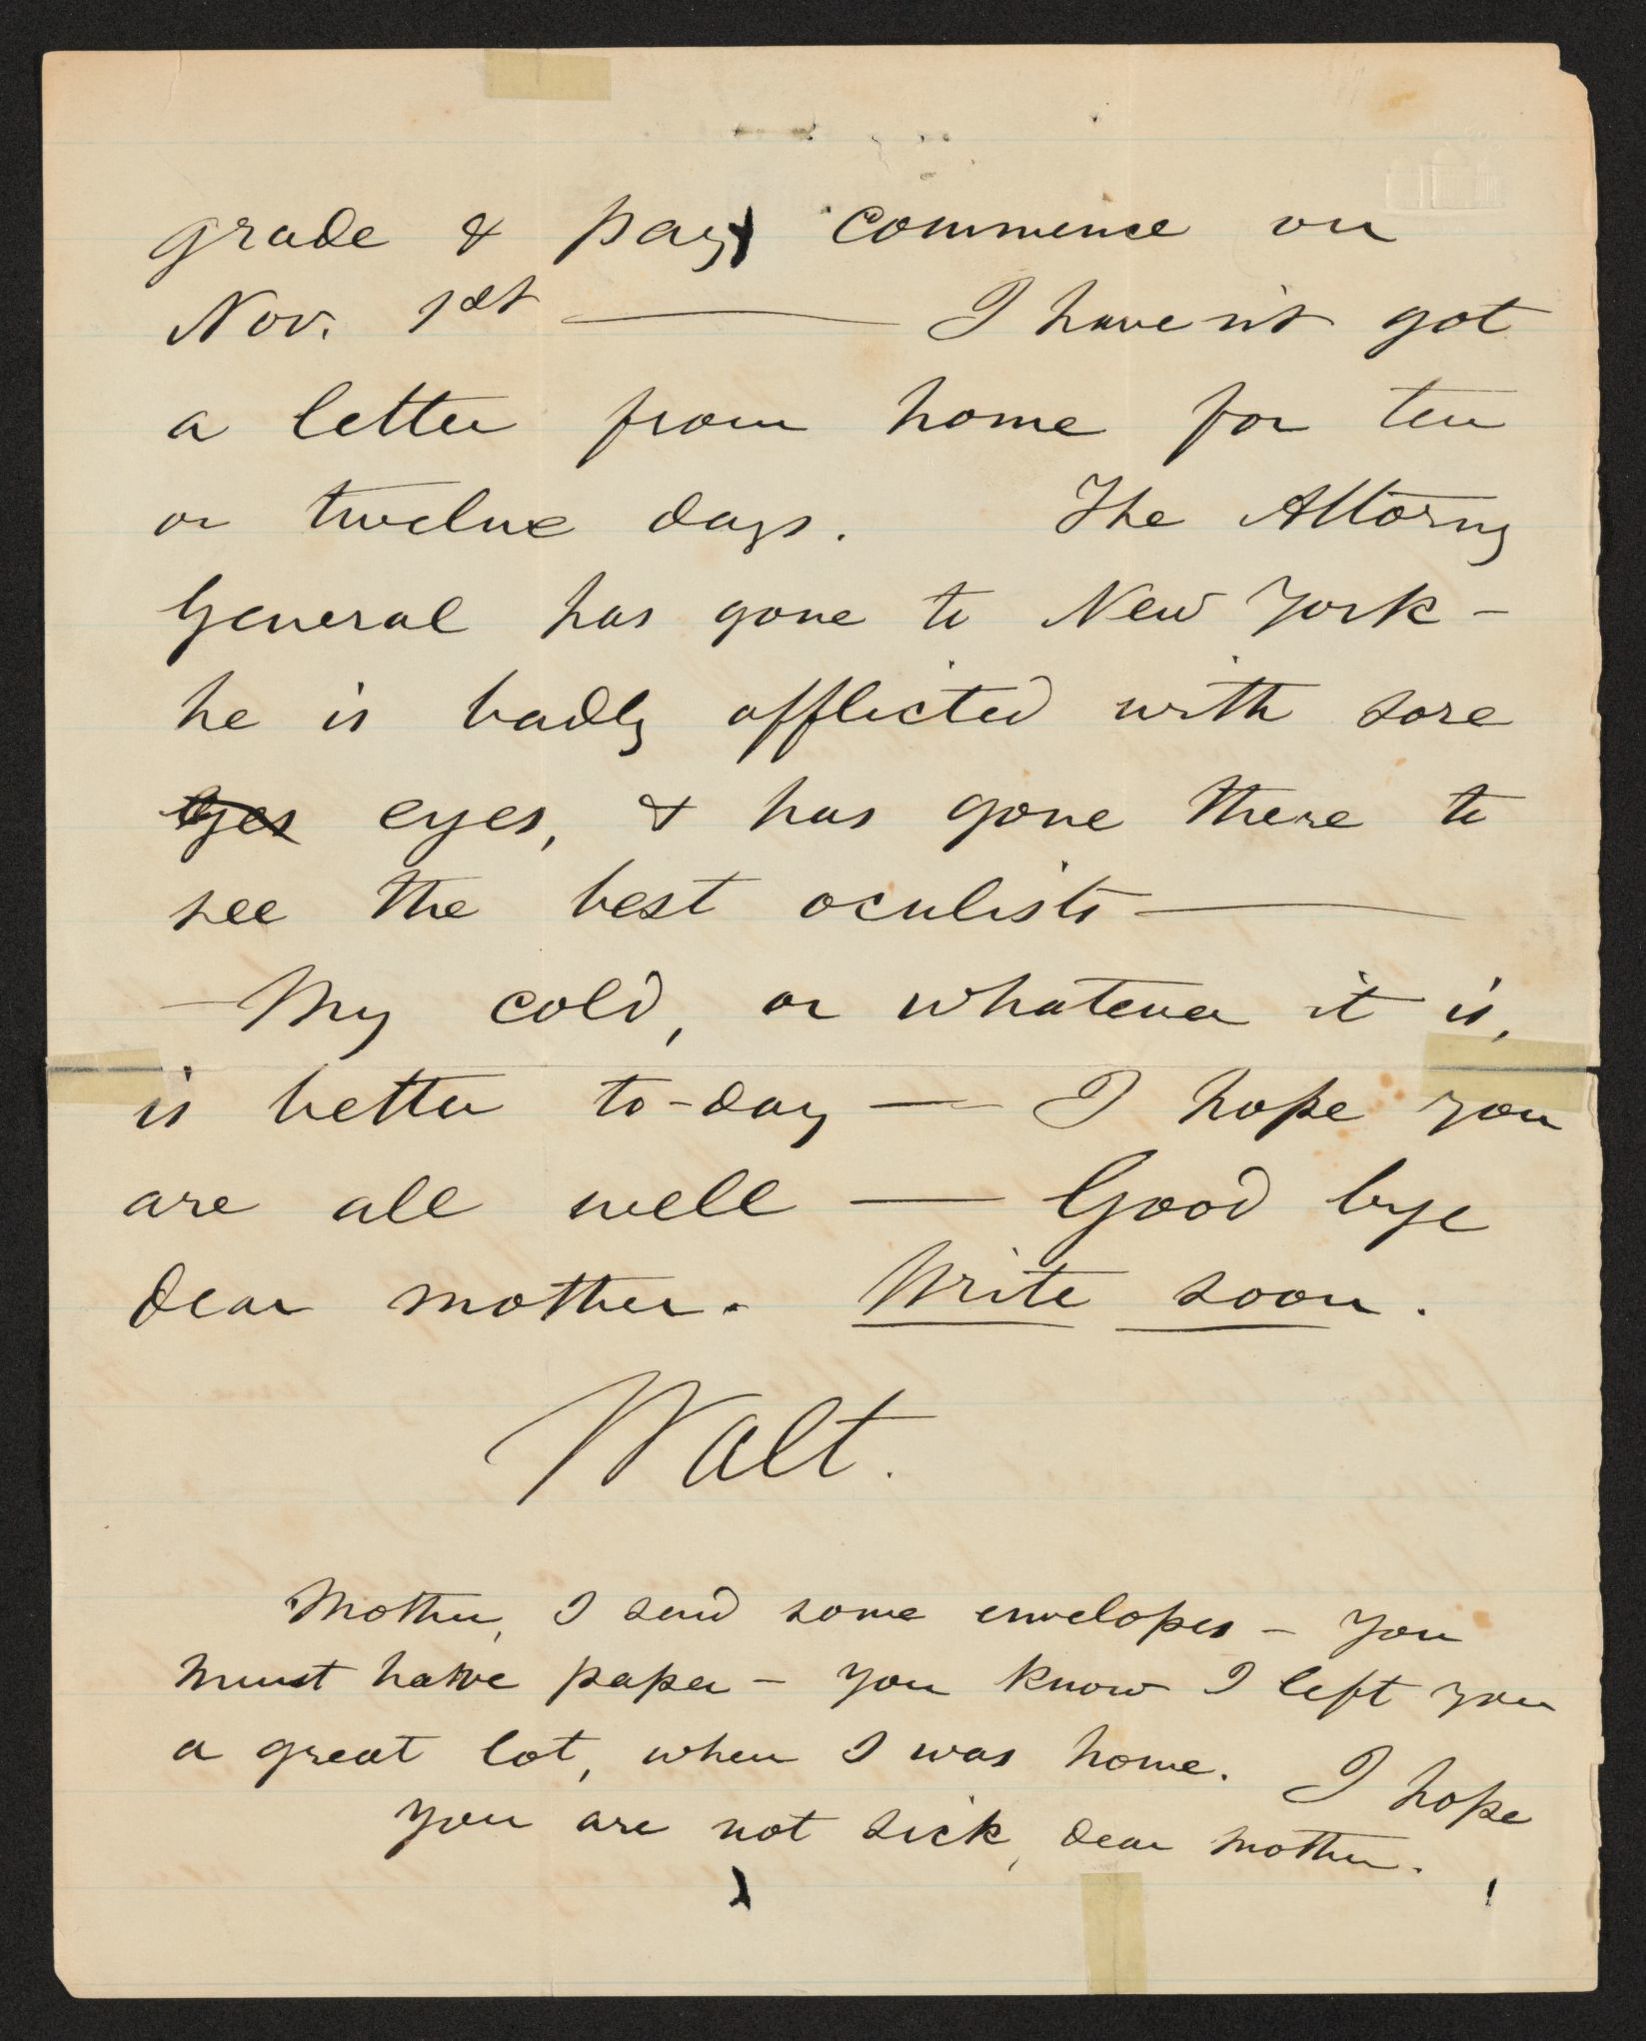 grade & pay, commence on
Nov. 1st —— I haven't got
a letter from home for ten
or twelve days. The Attorny
General has gone to New York –
he is badly afflicted with sore
eyes eyes, & has gone there to
see the best oculists ——
— My cold, or whatever it is,
is better to-day — I hope you
are all well — Good bye
dear mother. Write soon.
Walt.
Mother, I send some envelopes – you
must have paper – you know I left you
a great lot, when I was home. I hope
you are not sick, dear mother.